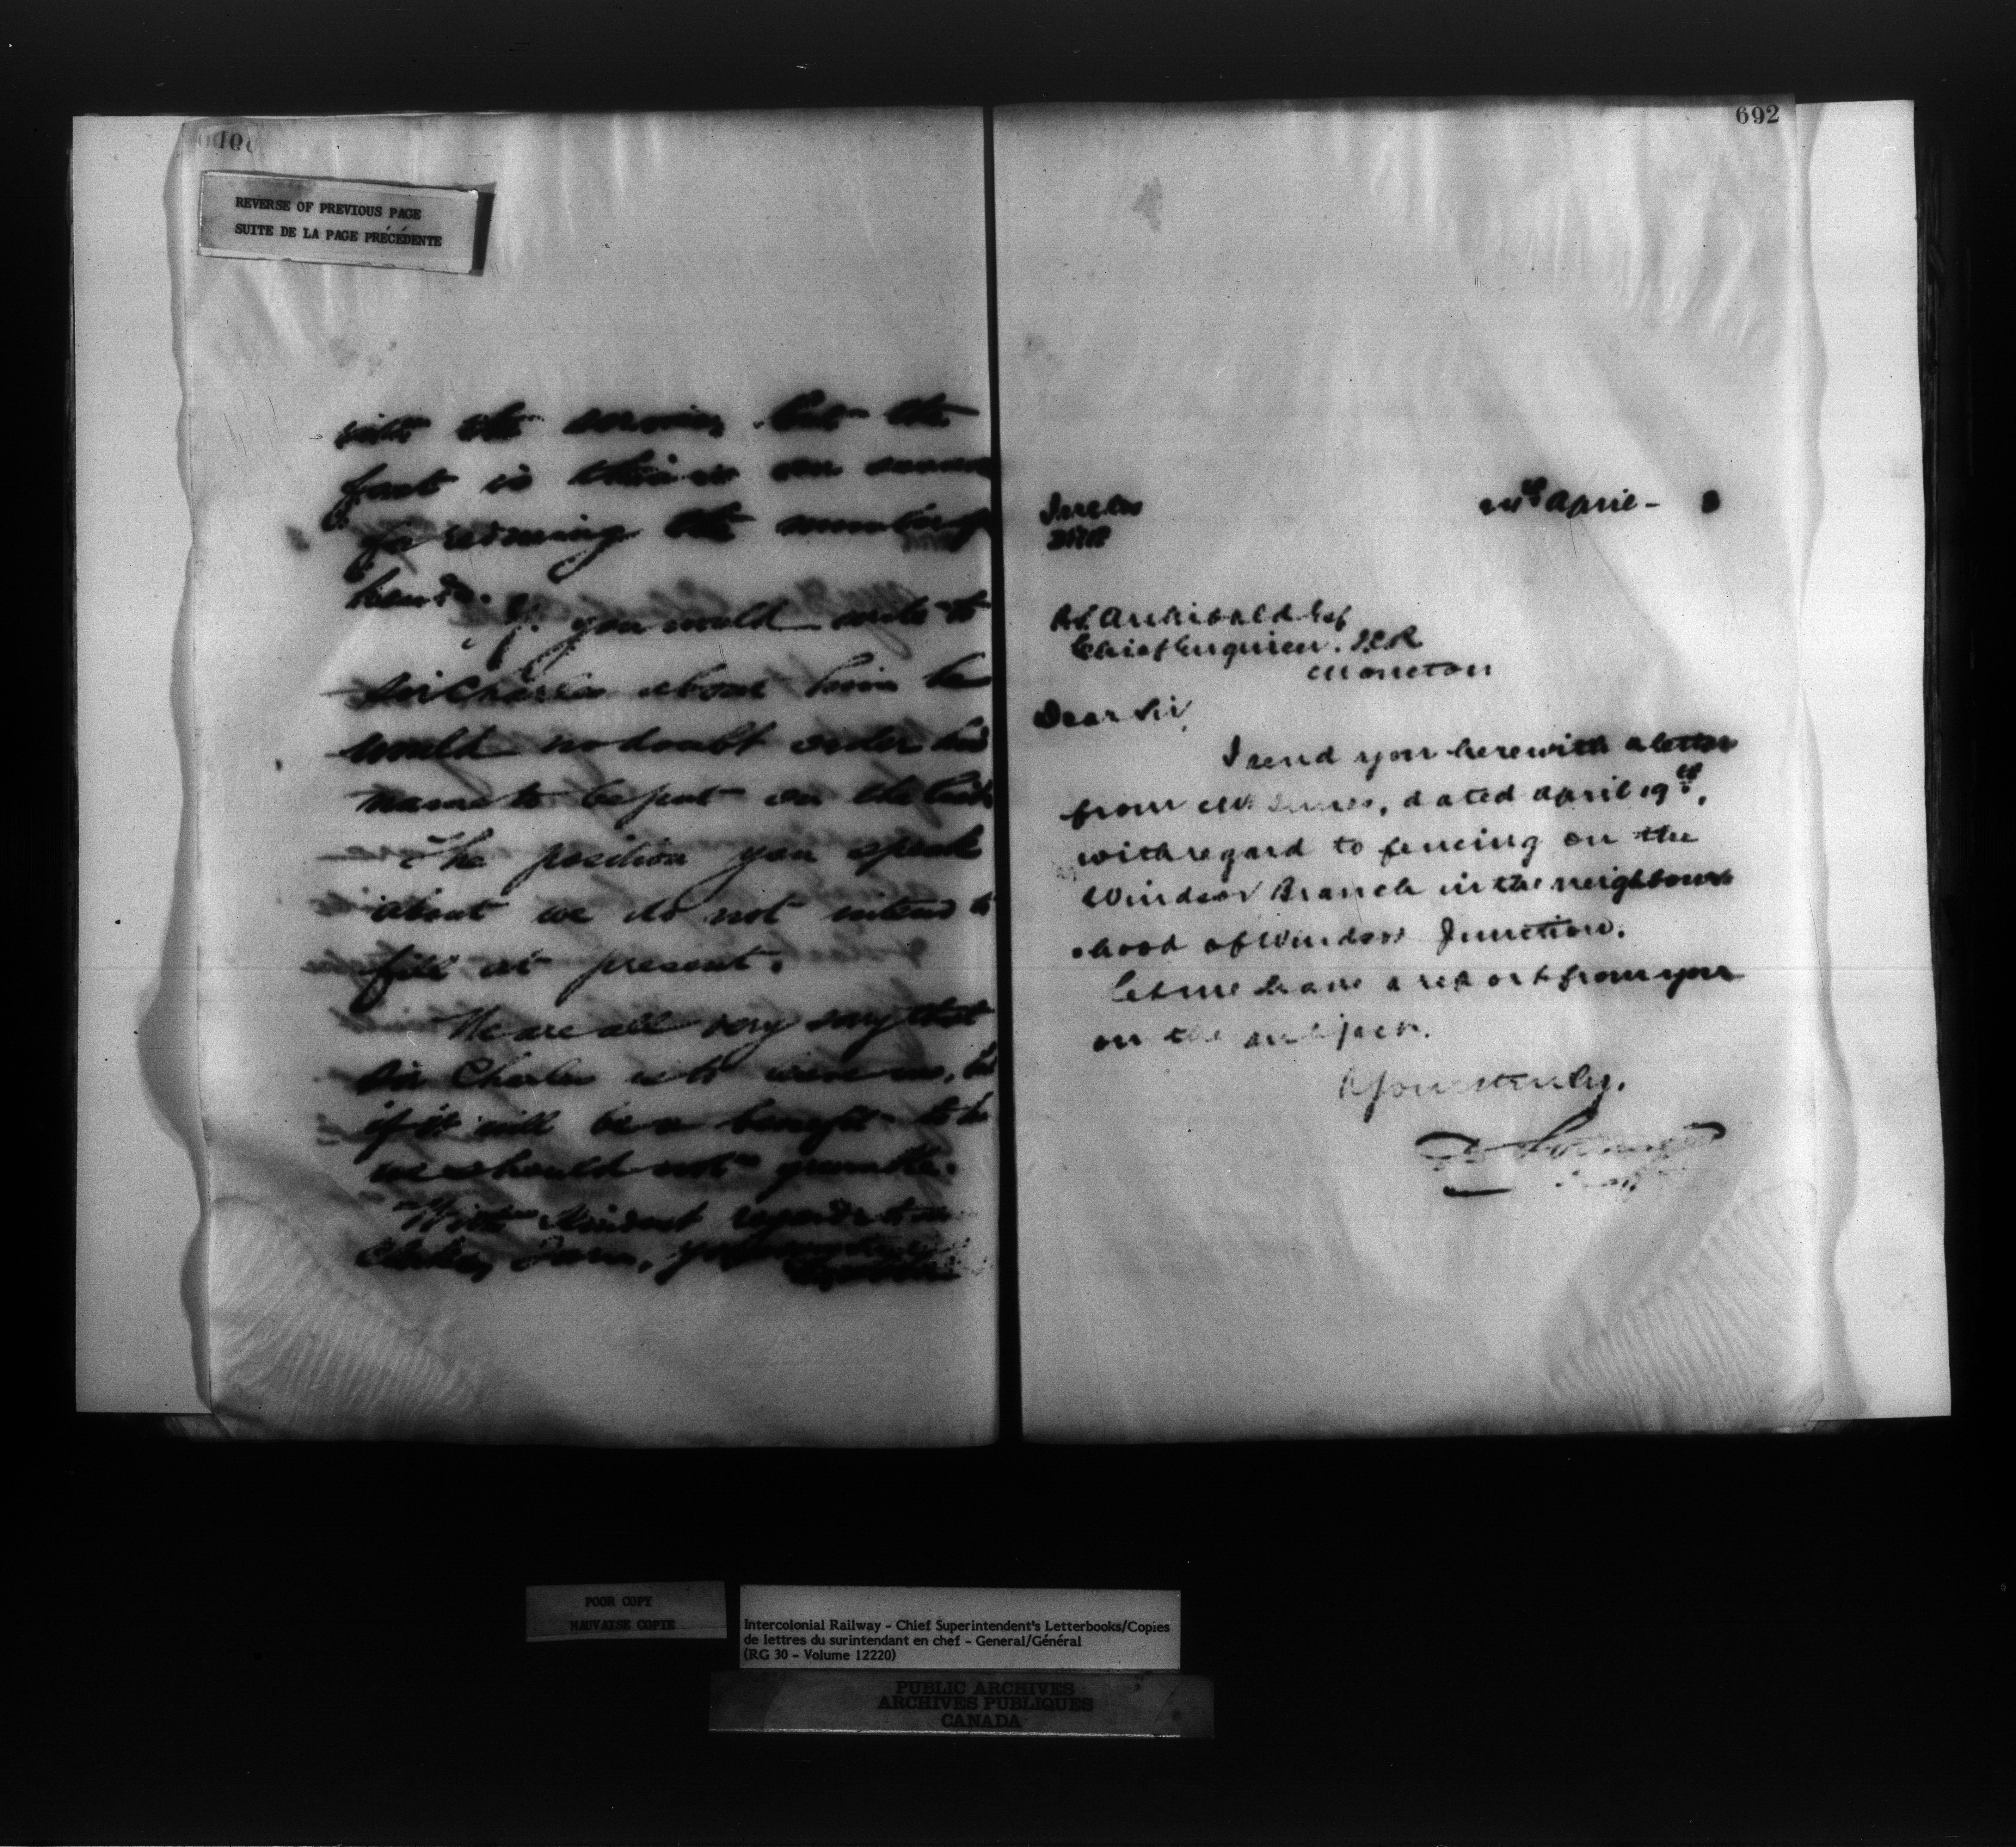 REVERSE OF PREVIOUS PAGE
SUITE DE LA PAGE PRÉCÉDENTE
the service, but the
fact is this is our
for reducing the number of
hands.
If you would write to
Sir Charles about him he
would no doubt order his
name to be put on the list
The position you speak
about we do not intend to
fill at present.
We are all very sorry that
Sir Charles is to leave us, but
if it will be a benefit to
we should not grumble.
With kindest regards to
692
April
Archibald Esq
Chief Engineer. I.C.R
Moncton
Dear Sir,
I send you herewith a letter
from Mr, dated April 19th,
with regard to fencing on the
Windsor Branch in the neighbour
hood of Windsor Junction.
Let me have a report from you
on the subject.
Yours truly,
POOR COPY
MAUVAISE COPIE
Intercolonial Railway - Chief Superintendent's Letterbooks/Copies
de lettres du surintendant en chef - General/Général
(RG 30 - Volume 12220)
PUBLIC ARCHIVES
ARCHIVES PUBLIQUES
CANADA